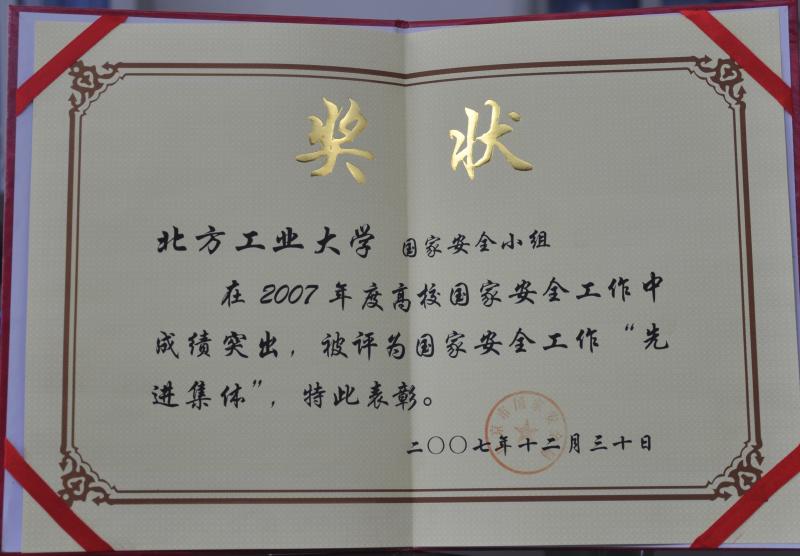 奖状
北方工业大学 国家安全小组
在2007年度高校国家安全工作中
成绩突出，被评为国家安全工作“先
进集体”，特此表彰。
二〇〇七年十二月三十日